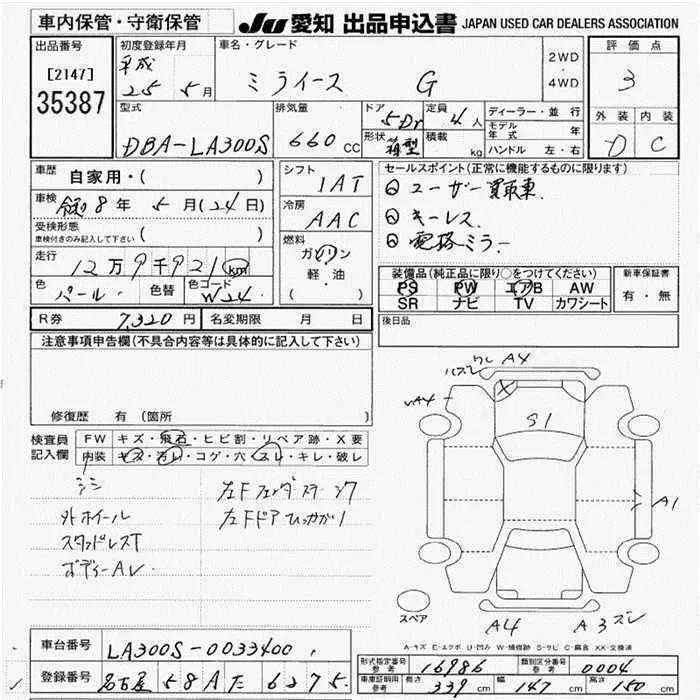 車内保管・守衛保管 JU 愛知 出品申込書 JAPAN USED CAR DEALERS ASSOCIATION
出品番号 初度登録年月 車名・グレード 2WD・4WD 評価点
[2147] 35387 平成 25 年 5 月 ミライース G 3
型式 排気量 ドア 定員 ディーラー・並行 外装 内装
DBA-LA300S 660 CC 5Dr 4人 モデル年式 年 D C
形状 箱型 積載 kg ハンドル 左・右
車歴 自家用・( ) シフト 1AT セールスポイント(正常に機能するものに限ります)
車検 令和8年 5月(24日) 冷房 AAC ユーザー買取車.
受検形態 ( ) キーレス.
車検付きのみ記入して下さい 電格ミラー
走行 12万9千921km 燃料 ガソリン 軽油 ( )
色 パール. 色替 色コード W24 装備品(純正品に限り○をつけてください) 新車保証書
PS PW エアB AW 有・無
SR ナビ TV カワシート
R券 7,320円 名変期限 月 日 後日品
注意事項申告欄(不具合内容等は具体的に記入して下さい)
修復歴 有 (箇所 )
検査員記入欄 FW キズ・飛石・ヒビ割・リペア跡・X要
内装 キズ・汚レ・コゲ・穴・スレ・キレ・破レ
A4
S1
A1
A4
A3 ズレ
外ホイール 左Fドアひっかかり
スタッドレスT
スペア
A-キズ E-エクボ U-凹み W-補修跡 S-サビ C-腐食 XX-交換済
車台番号 LA300S-0033400 型式指定番号 参考 16986 類別区分番号 参考 0004
登録番号 名古屋 58A た 6275 車庫証明用 参考 長さ 339 cm 幅 147 cm 高さ 150 cm